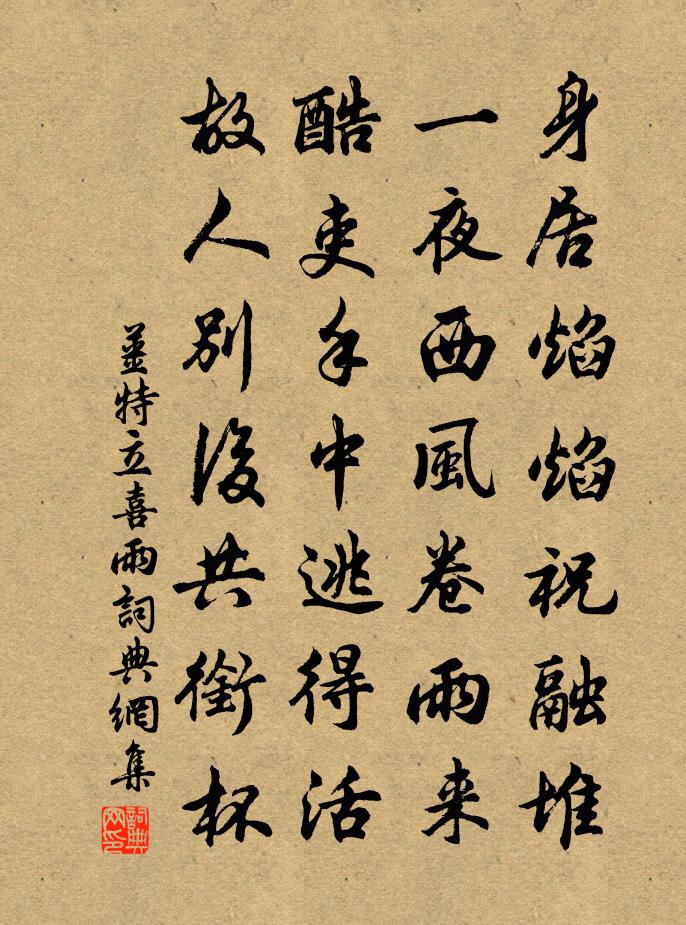 身居焰焰祝融堆
一夜西風卷雨来
酷吏手中逃得活
故人別後共銜杯
姜特立喜雨詞典網集
詞典網印